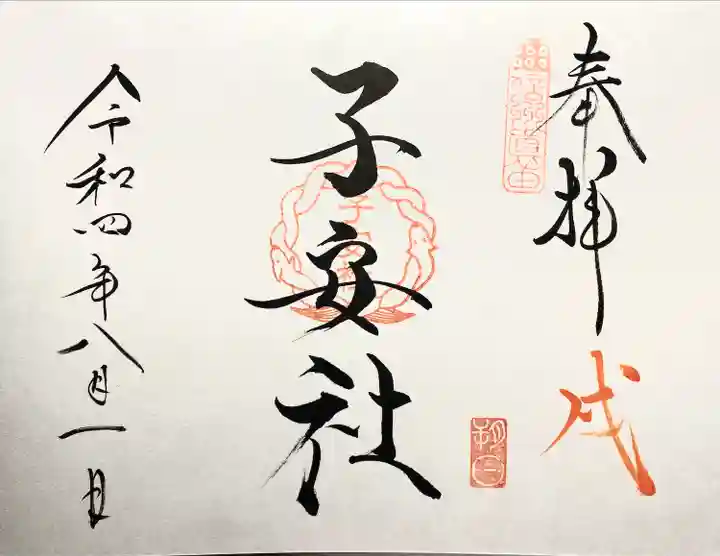 奉拝
戌
子安社
子安社
令和四年八月一日